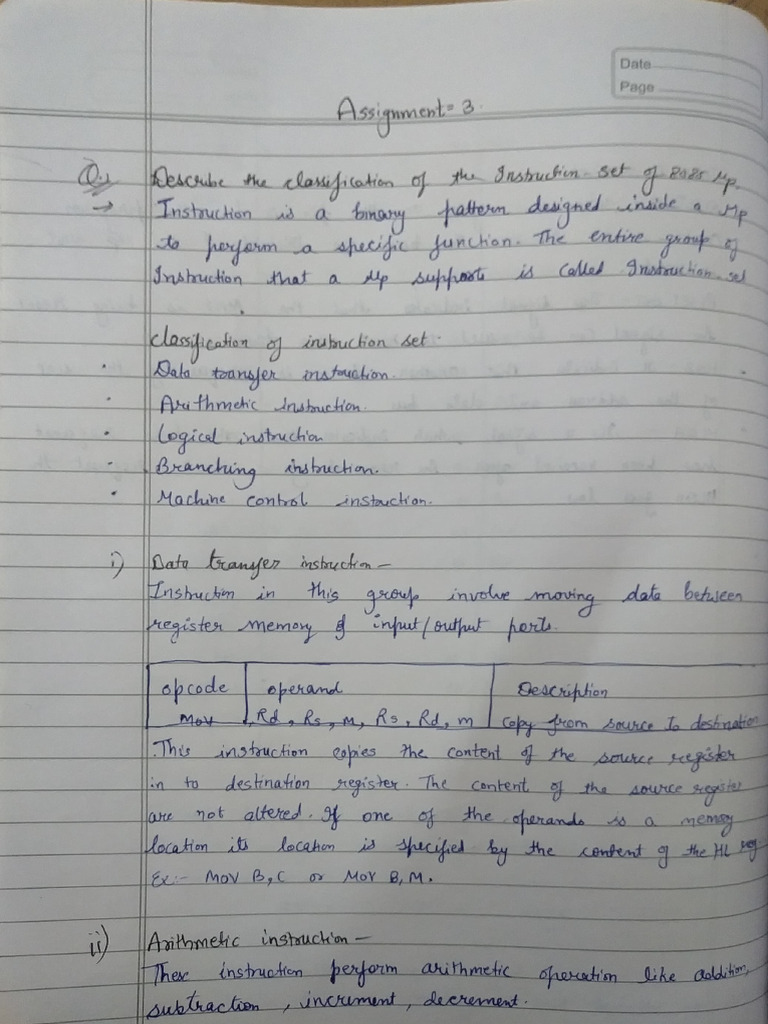 Date
Page
Assignment = 3.
Q.1 Describe the classification of the Instruction set of 8085 μp.
→ Instruction is a binary pattern designed inside a μp
to perform a specific function. The entire group of
Instruction that a μp supports is called Instruction set
classification of instruction set.
• Data transfer instruction.
• Arithmetic instruction.
• Logical instruction
• Branching instruction.
• Machine control instruction.
i) Data transfer instruction –
Instruction in this group involve moving data between
register memory & input/output ports.
opcode operand Description
MOV Rd, Rs, M, Rs, Rd, m copy from source to destination
This instruction copies the content of the source register
in to destination register. The content of the source register
are not altered. If one of the operands is a memory
location its location is specified by the content of the HL reg
Ex:- MOV B,C or MOV B,M.
ii) Arithmetic instruction –
These instruction perform arithmetic operation like addition,
subtraction, increment, decrement.